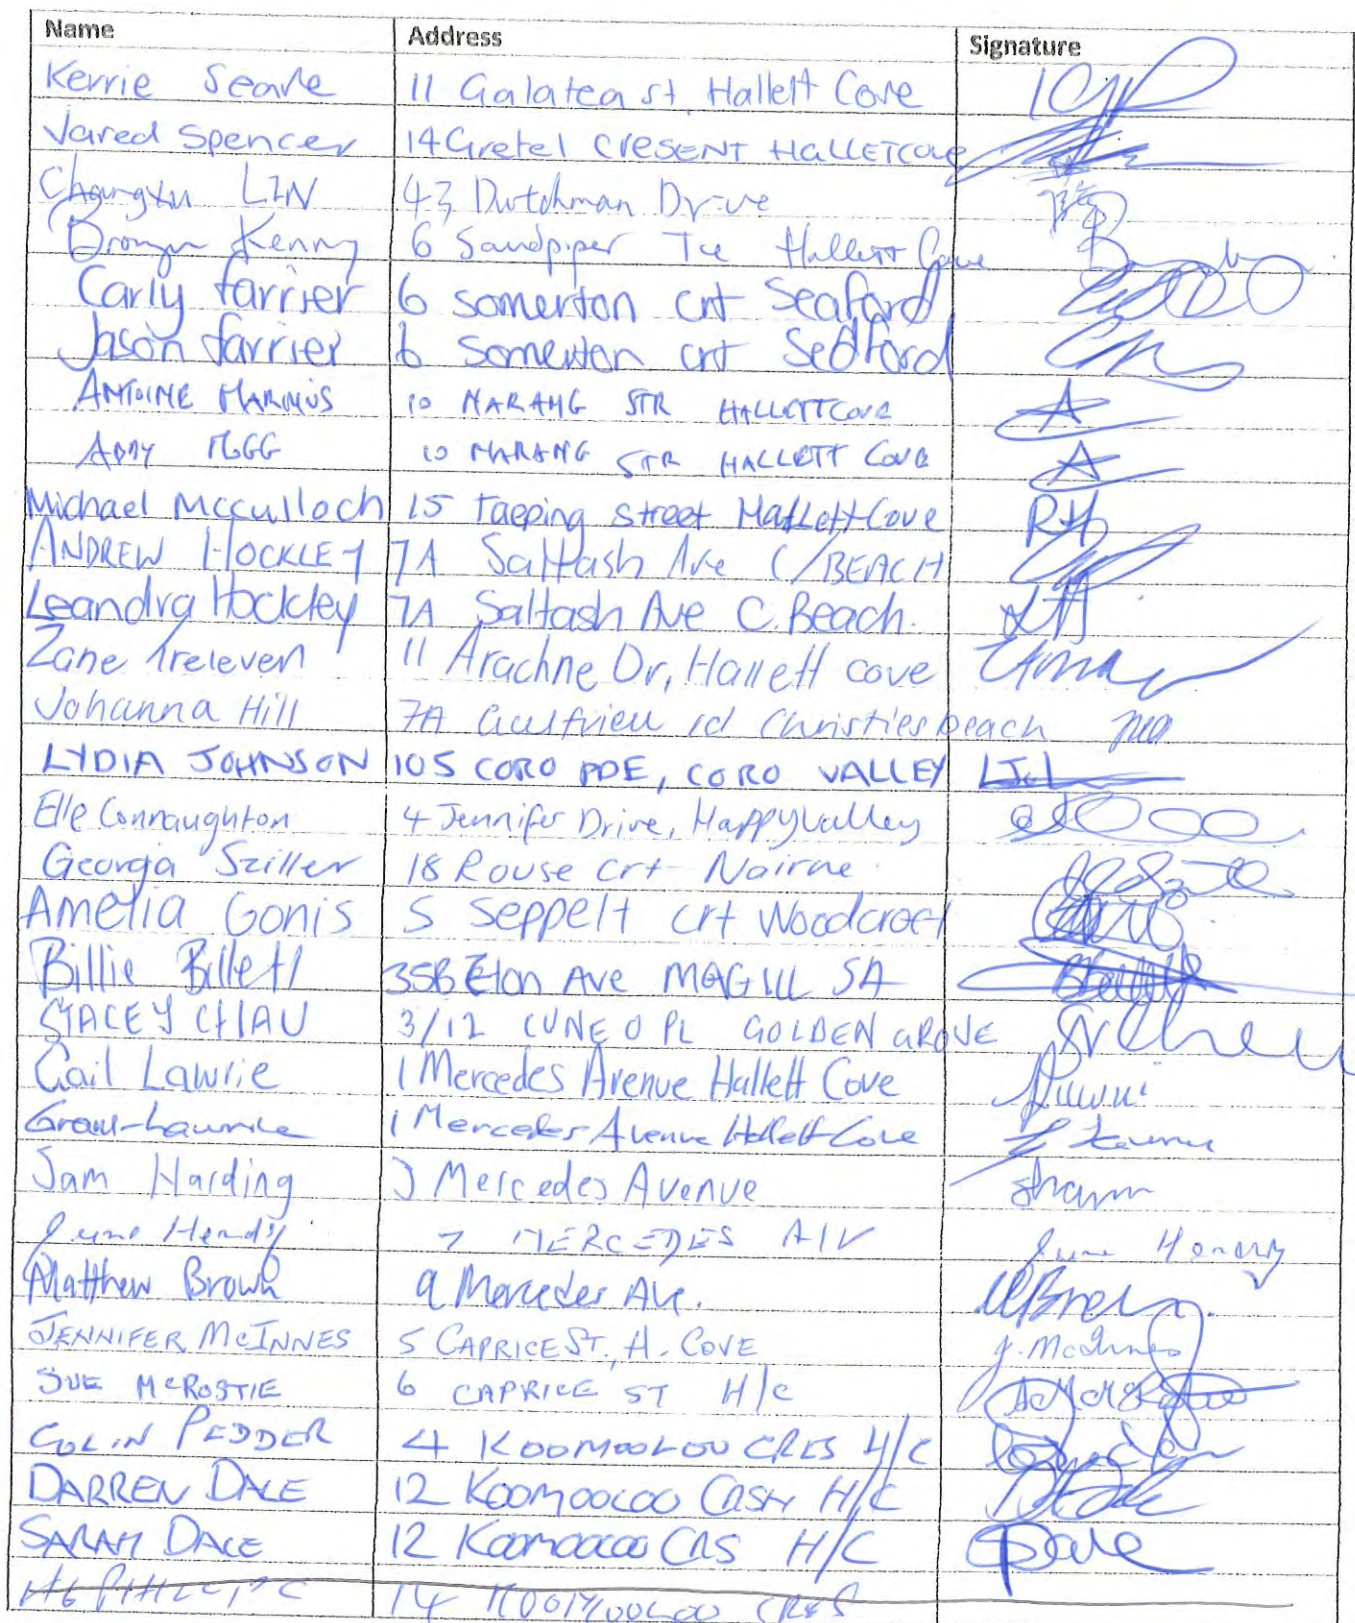 Name Address Signature
Kerrie Searle 11 Galatea st Hallett Cove
Jared Spencer 14 Gretel CRESENT HALLETCOVE
LIN 43 Dutchman Drive
Kenny 6 Sandpiper Tce Hallett Cove
Carly farrier 6 somerton crt Seaford
Jason farrier 6 somerton crt Seaford
ANTOINE MARINUS 10 NARANG STR HALLETTCOVE
10 NARANG STR HALLETT COVE
Michael Mcculloch 15 Taeping street HallettCove RH
ANDREW HOCKLEY 7A Saltash Ave C/BEACH
Leandra Hockley 7A Saltash Ave C. Beach. LH
Zane Treleven 11 Arachne Dr, Hallett cove
Johanna Hill 7A Gulfview rd Christies beach
LYDIA JOHNSON 105 CORO PDE, CORO VALLEY
Elle Connaughton 4 Jennifer Drive, Happy Valley
Georgia Sziller 18 Rouse crt Nairne
Amelia Gonis 5 Seppelt crt Woodcroft
Billie Billett 35B Elon Ave MAGILL SA
STACEY CHAU 3/12 CUNEO PL GOLDEN GROVE
Gail Lawrie 1 Mercedes Avenue Hallett Cove
1 Mercedes Avenue Hallett Cove
Sam Harding 3 Mercedes Avenue
June Hendy 7 MERCEDES AIV June Hendy
Matthew Brown 9 Mercedes Ave. MBrown
JENNIFER McINNES 5 CAPRICE ST. H. COVE J. McInnes
SUE McROSTIE 6 CAPRICE ST H/C
COLIN PEDDER 4 KOOMOOLOO CRES H/C
DARREN DALE 12 KOOMOOLOO H/C
SARAH DALE 12 KOOMOOLOO CRS H/C Dale
14 KOOMOOLOO CRES